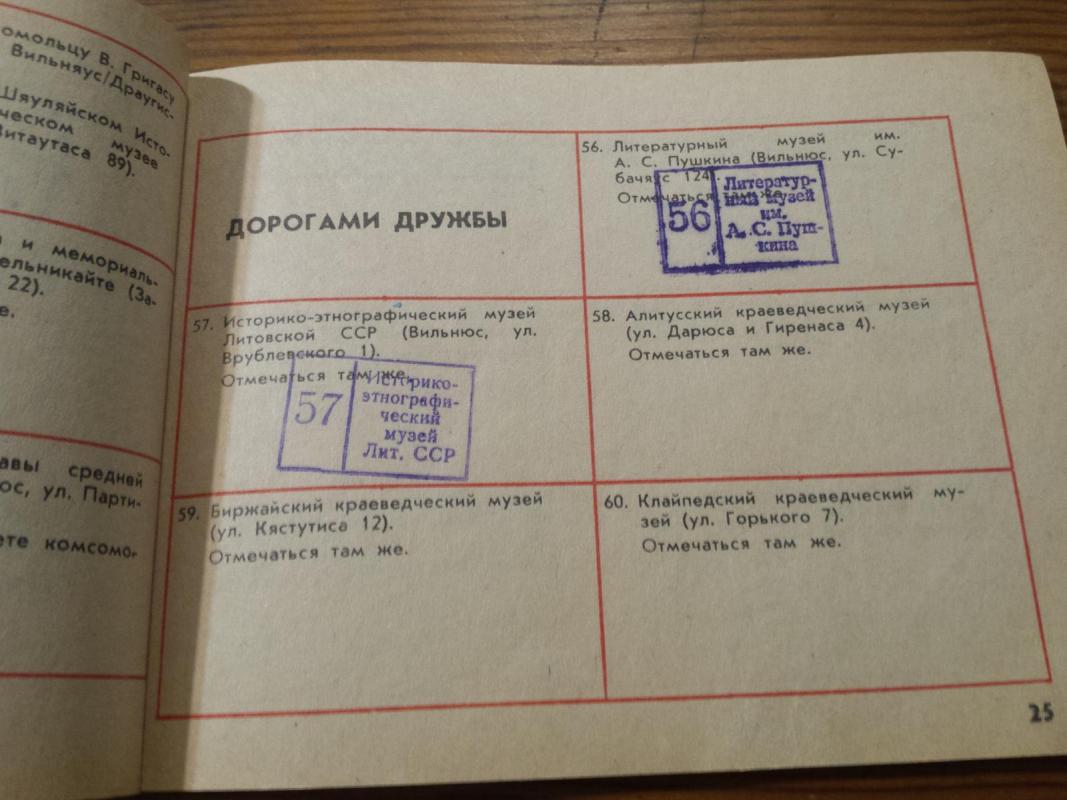 омольцу В. Григасу
Вильняус/Драугис-
Шяуляйском Исто-
ческом музее
Витаутаса 89).
и мемориаль-
ельникайте (За-
22).
е.
авы средней
юс, ул. Парти-
ете комсомо-
ДОРОГАМИ ДРУЖБЫ
56. Литературный музей им.
А. С. Пушкина (Вильнюс, ул. Су-
бачяус 124).
Отмечаться там же.
56
Литератур-
ный музей
им.
А. С. Пуш-
кина
57. Историко-этнографический музей
Литовской ССР (Вильнюс, ул.
Врублевского 1).
Отмечаться там же.
57
Историко-
этнографи-
ческий
музей
Лит. ССР
58. Алитусский краеведческий музей
(ул. Дарюса и Гиренаса 4).
Отмечаться там же.
59. Биржайский краеведческий музей
(ул. Кястутиса 12).
Отмечаться там же.
60. Клайпедский краеведческий му-
зей (ул. Горького 7).
Отмечаться там же.
25